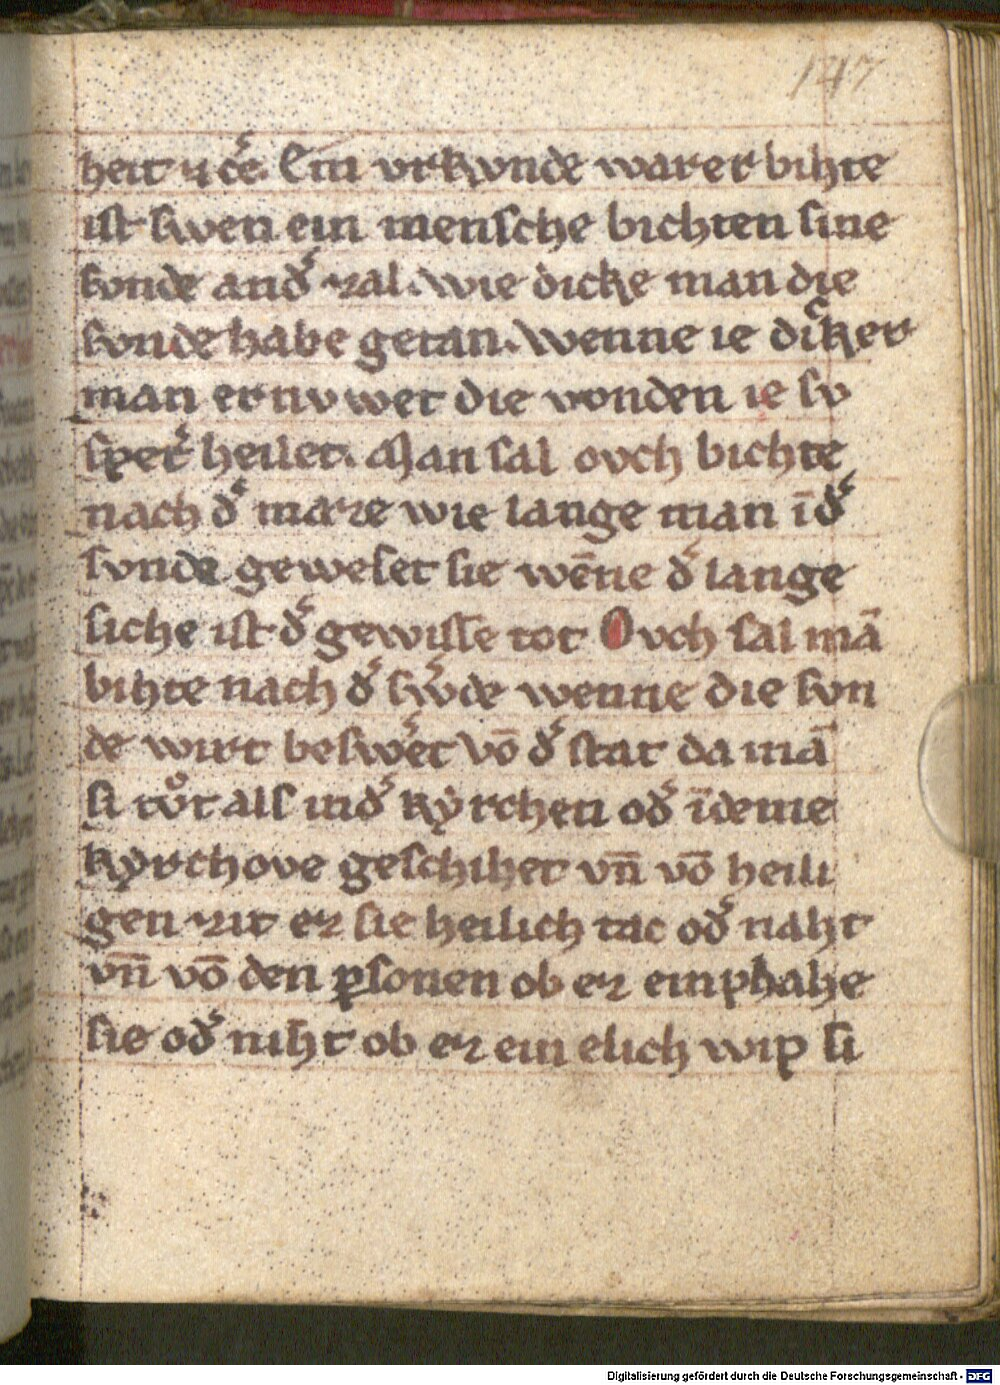 147
heit ⁊ cẻ. Ein vrkvnde warer bihte
ist swen ein mensche bichten sine
svnde and͛ zal. wie dicke man die
svnde habe getan. Wenne ie dicker
man ernvwet die vonden ie sv
spet͛ heilet. Man sal ovch bichte
nach d͛ maze wie lange man ī d͛
svnde geweset sie wēne d͛ lange
siche ist d͛ gewisse tot Ovch sal mā
bihte nach d͛ sw͛de wenne die svn
de wirt besw͛et vō d͛ stat da mā
si tvͦt als ind͛ kẏrchen od͛ īdeme
kẏrchove geschihet vn̄ vō heili
gen zit ez sie heilich tac od͛ naht
vn̄ vō den ꝑsonen ob ez emphahe
sie od͛ niht ob ez ein elich wip si
Digitalisierung gefördert durch die Deutsche Forschungsgemeinschaft - DFG